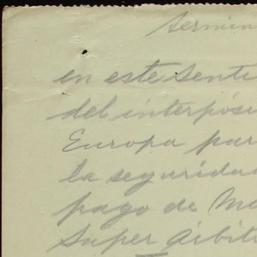 termin
en este senti
del interpósi
Europa par
la seguridad
pago de Ma
Super árbit